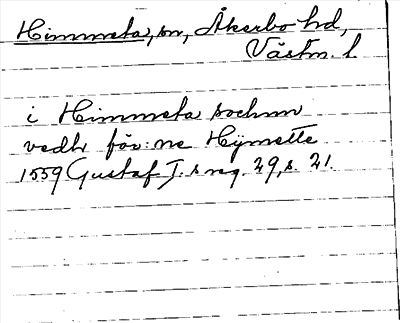 Himmeta, sn, Åkerbo hd,
Västm. l.
i Himmeta sochnn
vedh för:ne Hÿmette
1559 Gustaf I:s reg. 29, s. 21.